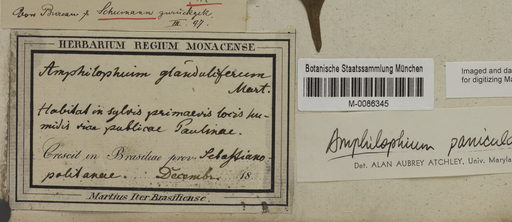 Von Bureau & Schumann zurückgek.
III. 97.
HERBARIUM REGIUM MONACENSE
Amphilophium glanduliferum
Mart.
Habitat in sylvis primaevis locis hu-
midis viae publicae Paulinae.
Crescit in Brasiliae prov. Sebastiano-
politanae. Decembr. 18
Martius Iter Brasiliense.
Botanische Staatssammlung München
M-0086345
Imaged and da
for digitizing Ma
Amphilophium panicula
Det. ALAN AUBREY ATCHLEY, Univ. Maryla